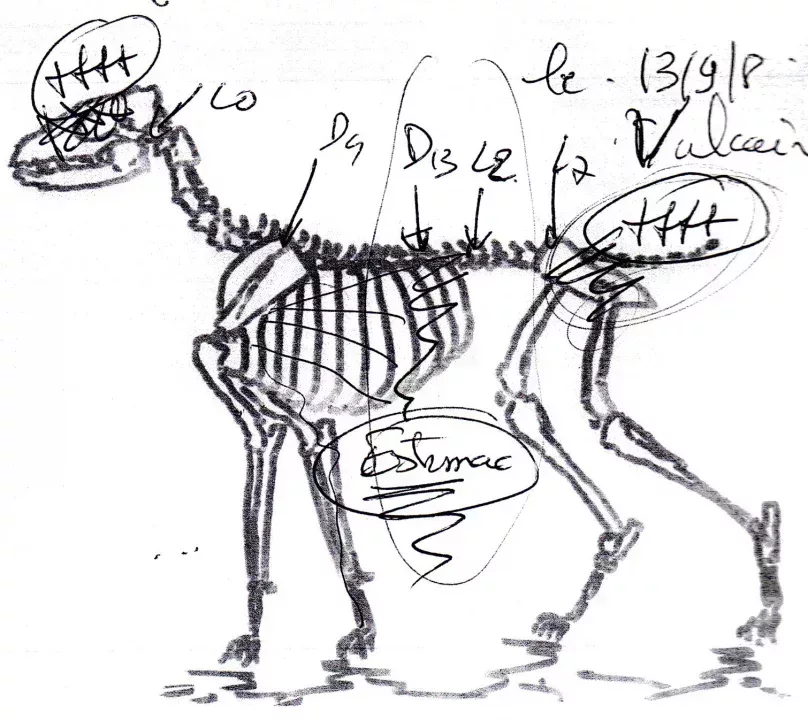 le. 13/9/8
Vulcain
++++
C0
D4
D13
L2
L7
++++
Estomac